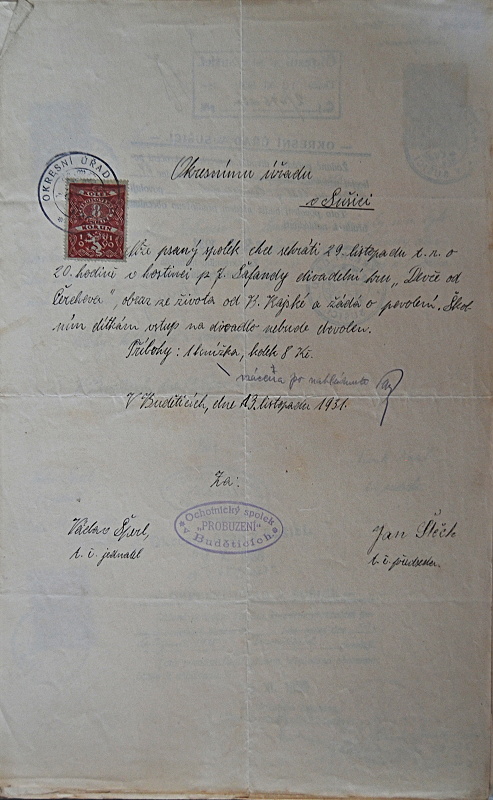 Okresnímu úřadu
v Sušici
OKRESNÍ ÚŘAD
KOLEK
8
KORUN
Níže psaný spolek chce sehráti 29. listopadu t. r. o
20. hodině v hostinci p. J. Šafandy divadelní hru „Děvče od
Čerchova", obraz ze života od K. Kapské a žádá o povolení. Škol-
ním dítkám vstup na divadlo nebude dovolen.
Přílohy: 1 knížka, kolek 8 Kč.
vrácena po nahlédnutí
V Budětících, dne 13. listopadu 1931.
Za:
Ochotnický spolek
"PROBUZENÍ"
v Budětících.
Václav Šperl,
t. č. jednatel
Jan Štěch
t. č. předseda.